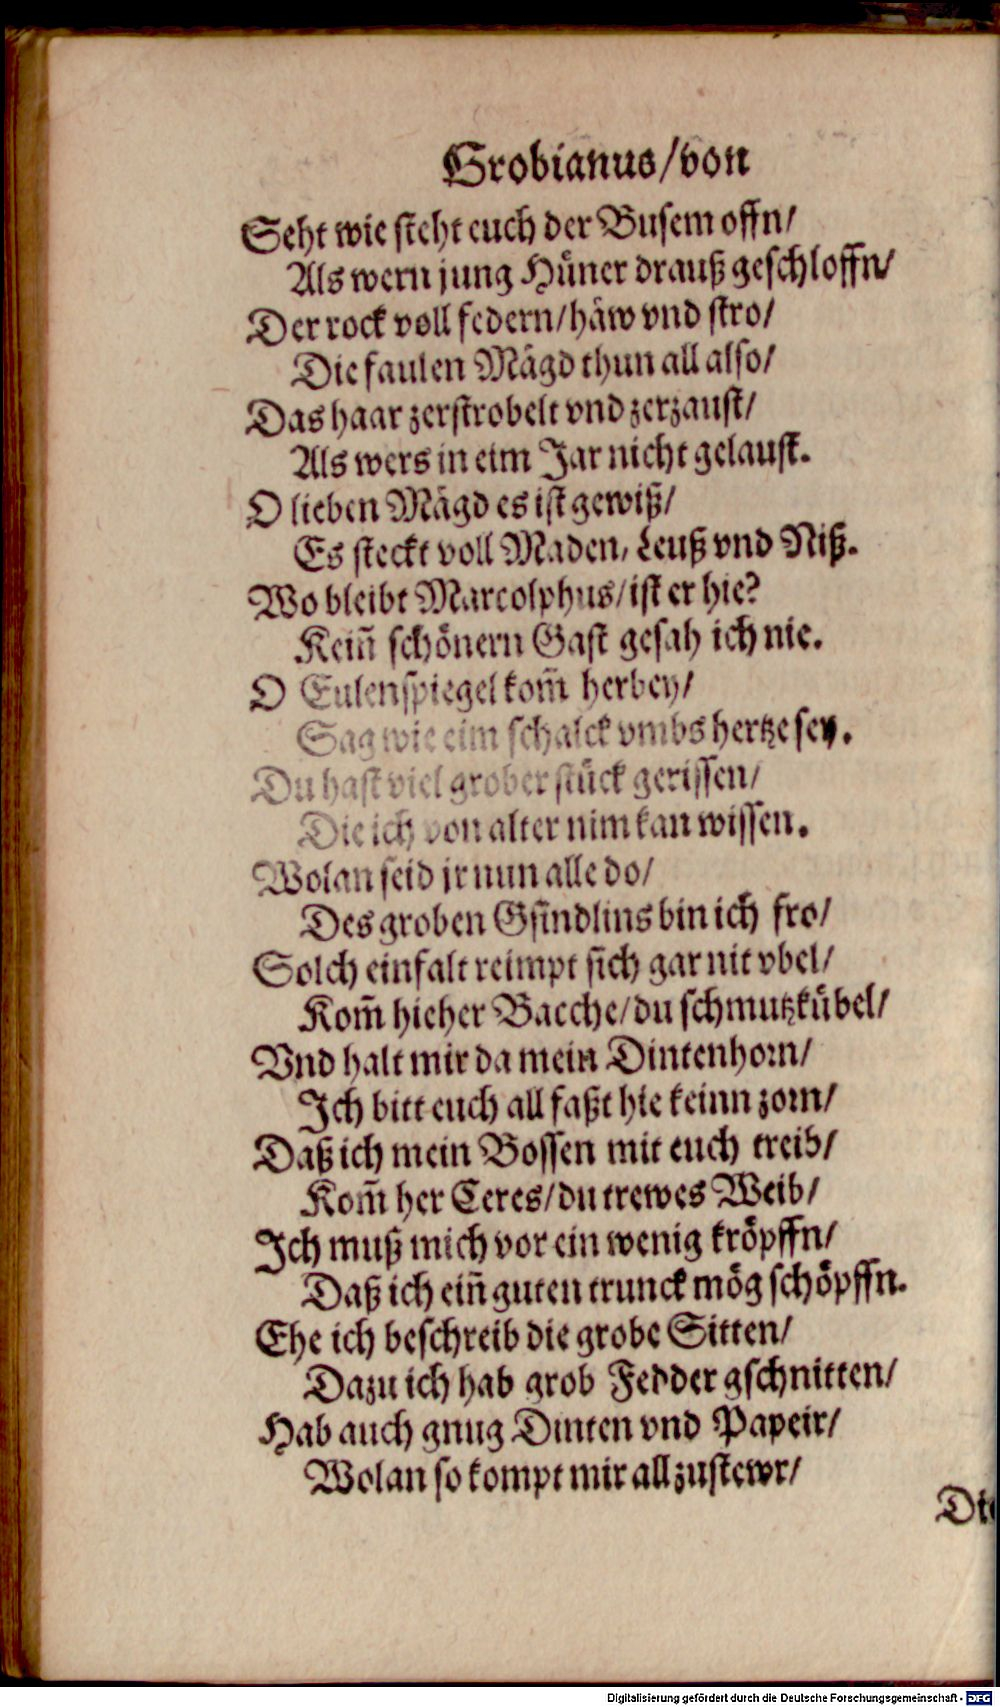 Grobianus/von
Seht wie steht euch der Busem offn/
Als wern jung Hüner drauß geschloffn/
Der rock voll federn/häw vnd stro/
Die faulen Mägd thun all also/
Das haar zerstrobelt vnd zerzaust/
Als wers in eim Jar nicht gelaust.
O lieben Mägd es ist gewiß/
Es steckt voll Maden/ Leuß vnd Niß.
Wo bleibt Marcolphus/ist er hie?
Kein̄ schönern Gast gesah ich nie.
O Eulenspiegel kom̄ herbey/
Sag wie eim schalck vmbs hertze sey.
Du hast viel grober stück gerissen/
Die ich von alter nim kan wissen.
Wolan seid jr nun alle do/
Des groben Gsindlins bin ich fro/
Solch einfalt reimpt sich gar nit vbel/
Kom̄ hieher Bacche/du schmutzkübel/
Vnd halt mir da mein Dintenhorn/
Ich bitt euch all faßt hie keinn zorn/
Daß ich mein Bossen mit euch treib/
Kom̄ her Ceres/du trewes Weib/
Ich muß mich vor ein wenig kröpffn/
Daß ich ein̄ guten trunck mög schöpffn.
Ehe ich beschreib die grobe Sitten/
Dazu ich hab grob Fedder gschnitten/
Hab auch gnug Dinten vnd Papeir/
Wolan so kompt mir all zustewr/
Die
Digitalisierung gefördert durch die Deutsche Forschungsgemeinschaft - DFG